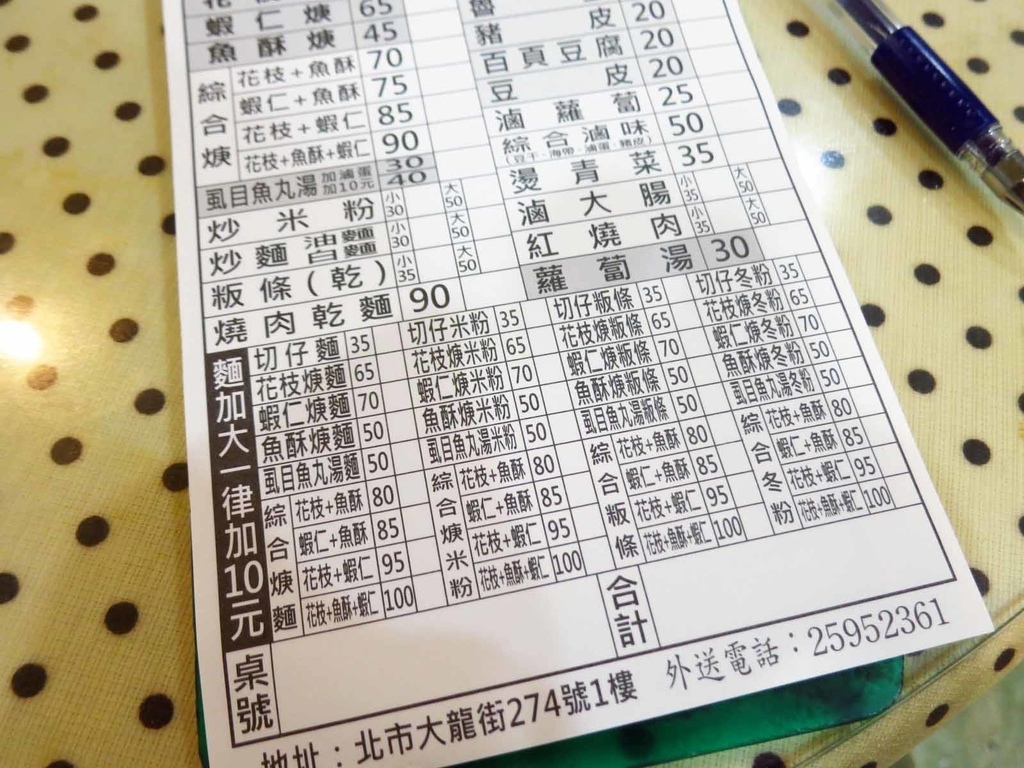 蝦仁焿 65
魚酥焿 45
綜合焿
花枝+魚酥 70
蝦仁+魚酥 75
花枝+蝦仁 85
花枝+魚酥+蝦仁 90
虱目魚丸湯 30
加滷蛋加10元 40
炒米粉 小30 大50
炒麵 油麵 小30 大50
粄條(乾) 小35 大50
燒肉乾麵 90
豬皮 20
百頁豆腐 20
豆皮 20
滷蘿蔔 25
綜合滷味 50
(豆干、海帶、滷蛋、豬皮)
燙青菜 35
滷大腸 小35 大50
紅燒肉 小35 大50
蘿蔔湯 30
麵加大一律加10元
切仔麵 35
花枝焿麵 65
蝦仁焿麵 70
魚酥焿麵 50
虱目魚丸湯麵 50
綜合焿麵
花枝+魚酥 80
蝦仁+魚酥 85
花枝+蝦仁 95
花枝+魚酥+蝦仁 100
切仔米粉 35
花枝焿米粉 65
蝦仁焿米粉 70
魚酥焿米粉 50
虱目魚丸湯米粉 50
綜合焿米粉
花枝+魚酥 80
蝦仁+魚酥 85
花枝+蝦仁 95
花枝+魚酥+蝦仁 100
切仔粄條 35
花枝焿粄條 65
蝦仁焿粄條 70
魚酥焿粄條 50
虱目魚丸湯粄條 50
綜合粄條
花枝+魚酥 80
蝦仁+魚酥 85
花枝+蝦仁 95
花枝+魚酥+蝦仁 100
切仔冬粉 35
花枝焿冬粉 65
蝦仁焿冬粉 70
魚酥焿冬粉 50
虱目魚丸湯冬粉 50
綜合冬粉
花枝+魚酥 80
蝦仁+魚酥 85
花枝+蝦仁 95
花枝+魚酥+蝦仁 100
桌號
合計
地址：北市大龍街274號1樓 外送電話：25952361